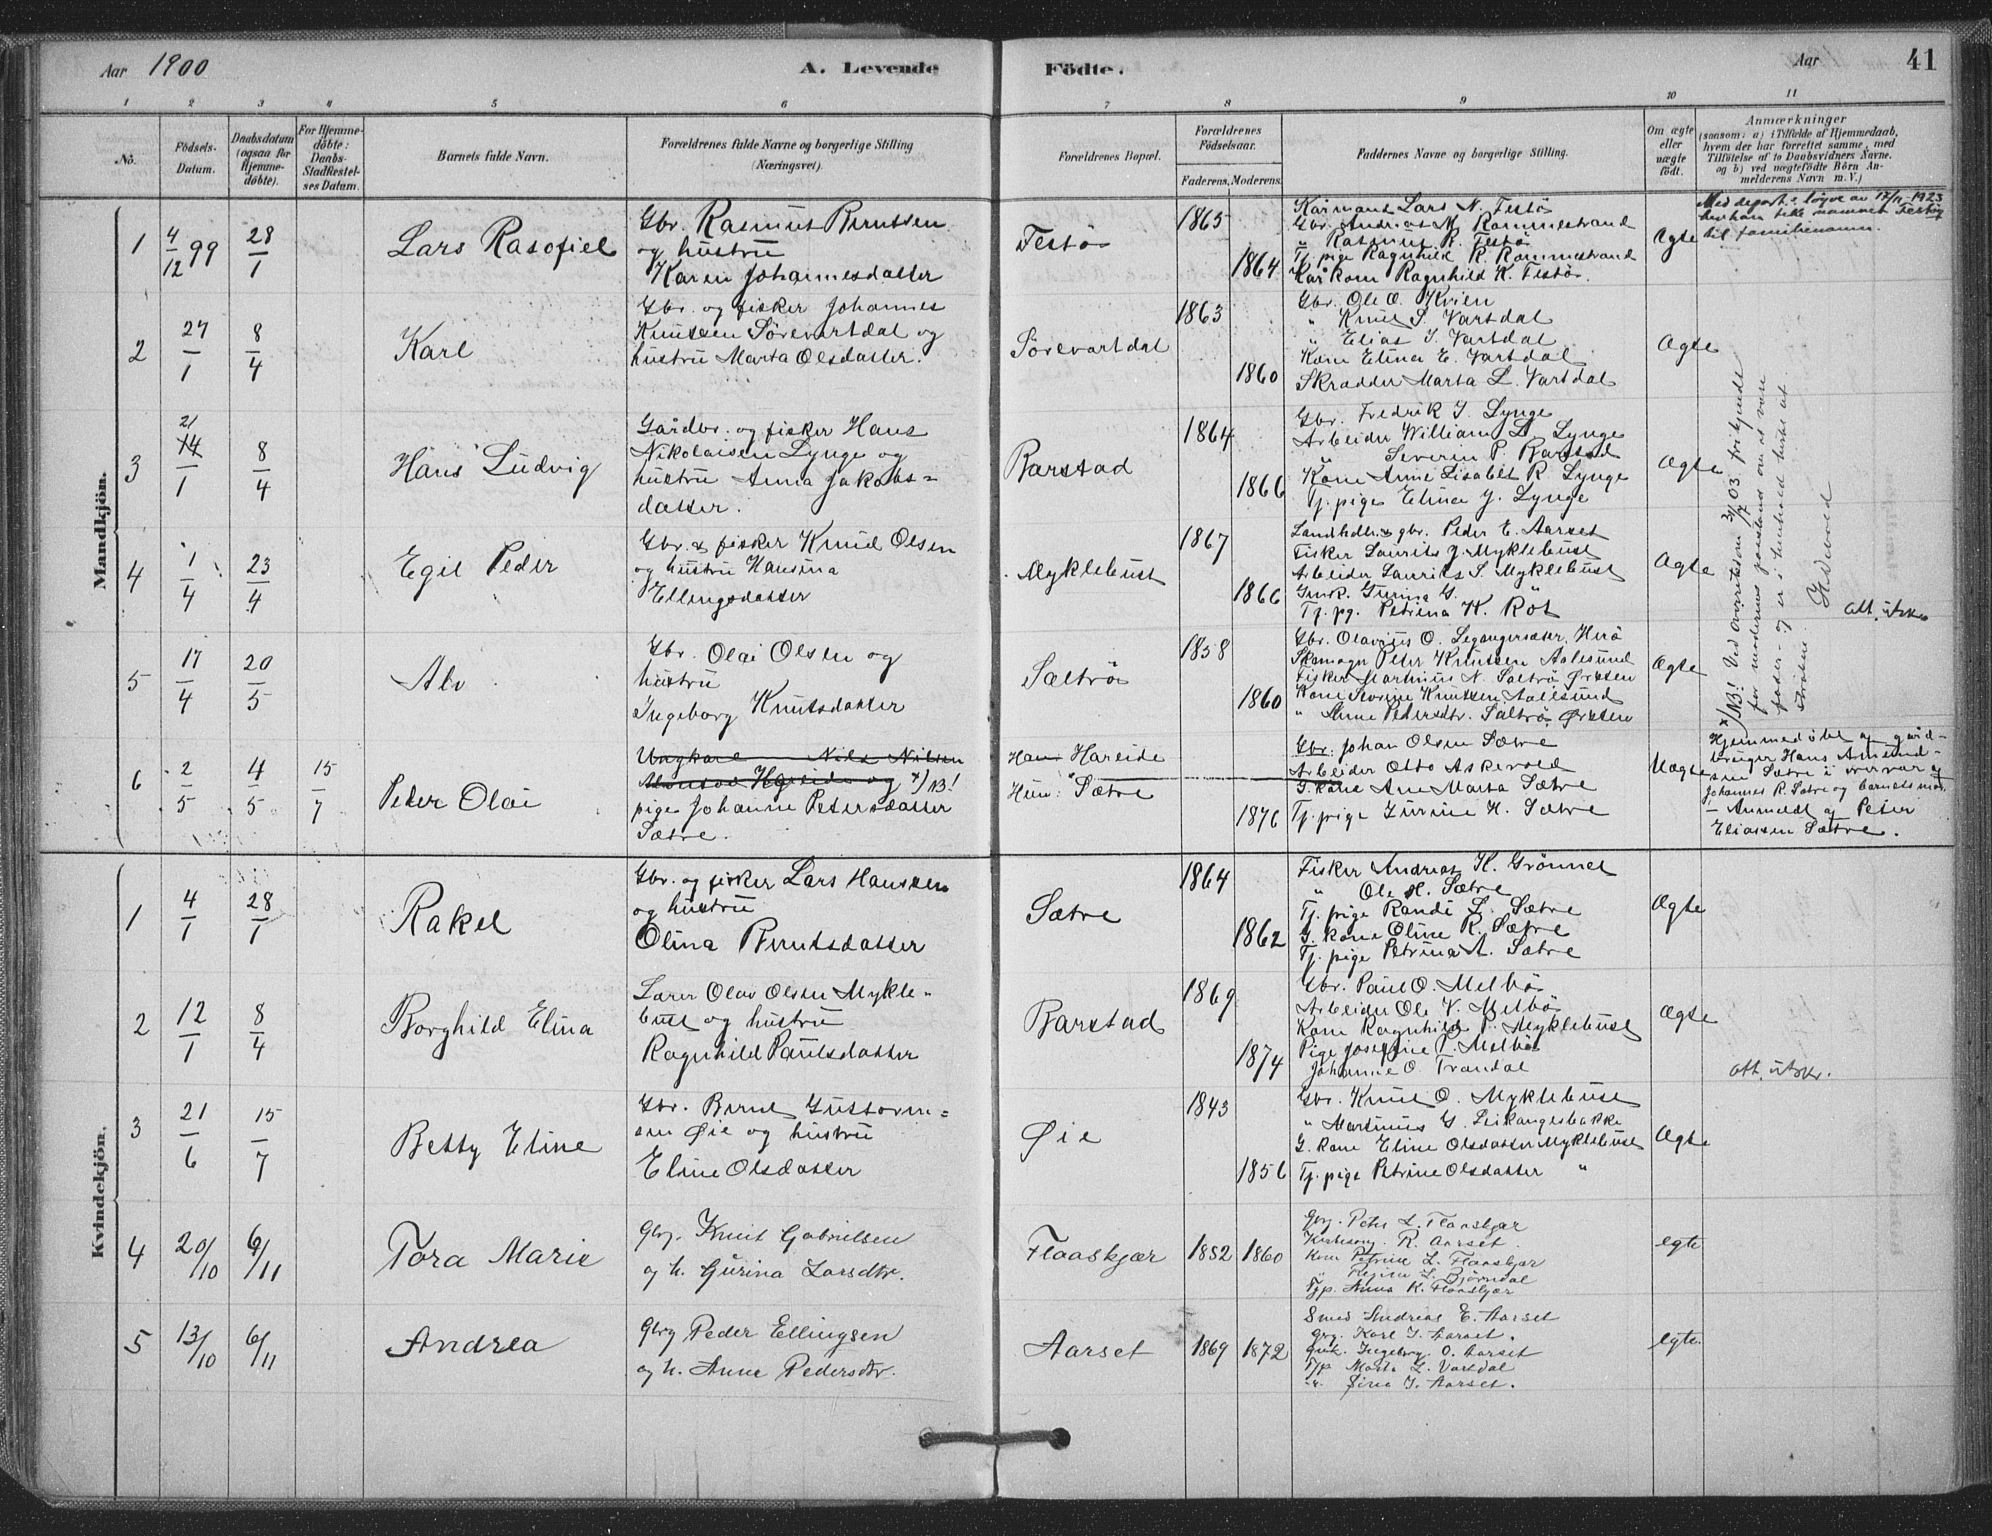 Aar 1900
A. Levende
Födte.
Aar
41
1 2 3 4 5 6 7 8 9 10 11
No.
Födsels-
Datum.
Daabsdatum
(ogsaa for
Hjemme-
döbte).
For Hjemme-
döbte:
Daabs-
Stadfæstel-
ses Datum.
Barnets fulde Navn.
Forældrenes fulde Navne og borgerlige Stilling
(Næringsvei).
Forældrenes Bopæl.
Forældrenes
Födselsaar.
Faderens. Moderens.
Faddernes Navne og borgerlige Stilling.
Om ægte
eller
uægte
födt.
Anmærkninger
(saasom: a) i Tilfælde af Hjemmedaab,
hvem der har forrettet samme, med
Tilföielse af to Daabsvidners Navne.
og b) ved uægtefödte Börn An-
melderens Navn m. V.)
Mandkjön.
1
4/12 99
28/1
Lars Rasofiel
Gbr. Rasmus Berntsen
og hustru
Karen Johannesdatter
Festö
1865
1864
Kårmand Lars N. Festö
Gbr. Andreas M. Rammestrand
" Rasmus R. Festö
Tj. pige Ragnhild R. Rammestrand
Kår kone Ragnhild K. Festö.
Ægte
Med depart.s løyve av 17/11 1923
hev han teke namnet Festøy
til familienamn.
2
27/1
8/4
Karl
Gbr. og fisker Johannes
Knutsen Sörevartdal og
hustru Marta Olsdatter.
Sörevartdal
1863
1860
Gbr. Ole O. Kvien
" Knut S. Vartdal
" Elias I. Vartdal
Kone Elina E. Vartdal
Skrædder Marta L. Vartdal
Ægte
3
21
14/1
8/4
Hans Ludvig
Gårdbr. og fisker Hans
Nikolaisen Lynge og
hustru Anna Jakobs=
datter.
Barstad
1864
1866
Gbr. Fredrik I. Lynge
Arbeider William L. Lynge
Severin P. Barstad
Kone Anne Lisabet R. Lynge
Tj. pige Elina J. Lynge
Ægte
4
1/4
23/4
Egil Peder
Gbr. & fisker Knud Olsen
og hustru Hansina
Ellingsdatter
Myklebust
1867
1866
Landhdl. & gbr. Peder E. Aarset
Fisker Laurits J. Myklebust
Arbeider Laurits S. Myklebust
Gmk. Gurina G. "
Tj. pg. Petrina K. Röt
Ægte
att. utskr.
5
17/4
20/5
Alv
Gbr. Olai Olsen og
hustru
Ingeborg Knutsdatter
Sætrö
1858
1860
Gbr. Olavius O. Legangersæter, Herö
Skomagr Peter Knutsen Aalesund
Fisker Martinus N. Saltrö Örsten
Kone Severine Knutsen Aalesund
" Anne Pedersdtr. Saltrö Örsten
Ægte
6
2/5
4/5
15/7
Peder Olai
Ungkarl Nils Nilsen
Hareide og x) NB!
pige Johanne Petersdatter
Sætre.
Han Hareide
Hun: Sætre
1876
Gbr. Johan Olsen Sætre
Arbeider Otto Askevold
G. kone Ane Marta Sætre
Tj. pige Gurine H. Sætre
Uægte
x) NB! Ved overretsdom 3/7 03 frikjendt
for moderens paastand om at være
fader – og er i henhold hertil at
stroken. Hidevold
Hjemmedöbt af gård-
bruger Hans Amund-
sen Sætre i nærvær af
Johannes R. Sætre og barnets mor.
– Anmeldt af Peter
Eliassen Sætre.
Kvindekjön.
1
4/1
28/1
Rakel
Gbr. og fisker Lars Hanssen
og hustru
Olina Berntsdatter
Sætre
1864
1862
Fisker Andreas K. Grönnet
" Ole H. Sætre
Tj. pige Randi L. Sætre
G. kone Oline R. Sætre
Tj. pige Petrina A. Sætre
Ægte
2
12/1
8/4
Borghild Elina
Lærer Olav Olsen Mykle-
bust og hustru
Ragnhild Paulsdatter
Barstad
1869
1874
Gbr. Paul O. Melbö
Arbeider Ole V. Melbö
Kone Ragnhild P. Myklebust
Pige Josefine P. Melbö
Johanne O. Trandal
Ægte
att. utskr.
3
21/6
15/7
Betty Eline
Gbr. Bernt Gustavin=
sen Øie og hustru
Eline Olsdatter
Øie
1843
1856
Gbr. Knut O. Myklebust
" Martinus G. Leikangesbakke
G. kone Eline Olsdatter Myklebust
Tj. pige Petrine Olsdatter "
Ægte
4
20/10
6/11
Tora Marie
Gbrg. Knut Gabrielsen
og h. Gurina Larsdtr.
Flaaskjær
1852 1860
Gbrg. Peter L. Flaaskjær
Kirkesang. R. Aarset.
Kone Petrine L. Flaaskjær
" Regine L. Bjørndal
Tjp. Anna K. Flaaskjær
egte
5
13/10
6/11
Andrea
Gbrg Peder Ellingsen
og h. Anne Pedersdtr.
Aarset
1869 1872
Smed Andreas E. Aarset
Gbrg. Karl I. Aarset.
Gmk. Ingeborg O. Aarset
Tjp Marta L. Vartdal
" Sina I. Aarset.
egte.